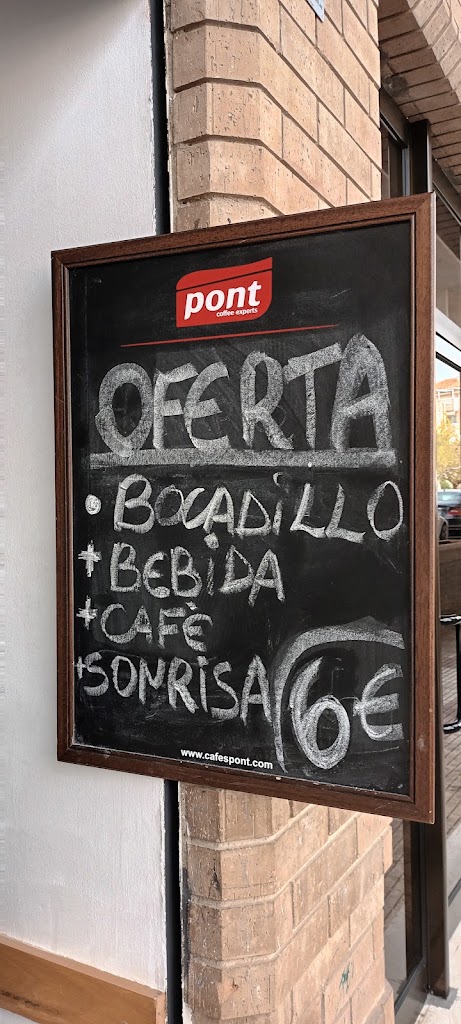 pont
coffee experts
OFERTA
• BOCADiLLO
+ BEBiDA
+ CAFÈ
+ SONRiSA 6€
www.cafespont.com